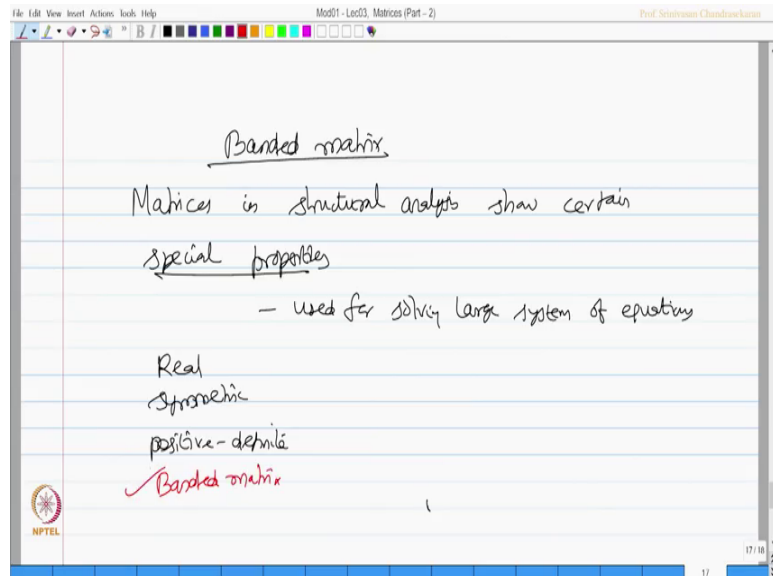 File Edit View Insert Actions Tools Help
Mod01 - Lec03, Matrices (Part – 2)
Prof. Srinivasan Chandrasekaran
B I
Banded matrix
Matrices in structural analysis show certain
special properties
- used for solving large system of equations
Real
Symmetric
positive-definite
✓Banded matrix
NPTEL
17 / 18
17